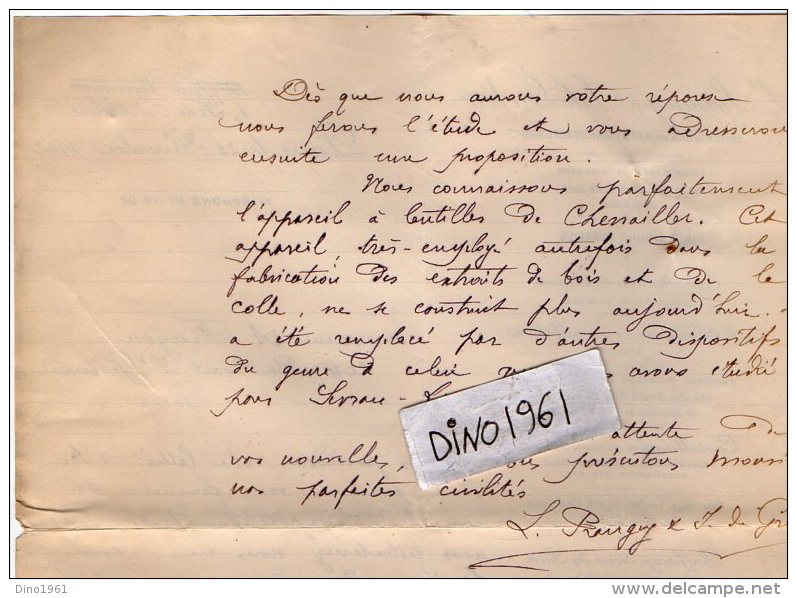 Dès que nous aurons votre réponse
nous ferons l'étude et vous adresserons
ensuite une proposition.
Nous connaissons parfaitement
l'appareil à lentilles de Chenailler. Cet
appareil, très-employé autrefois dans la
fabrication des extraits de bois et de la
colle, ne se construit plus aujourd'hui.
a été remplacé par d'autres dispositifs
du genre de celui avons étudié
pour Sevran-
attente de
vos nouvelles, présentons
nos parfaites civilités
L. & J. de
DINO1961
Dino1961
http://www.delcampe.net